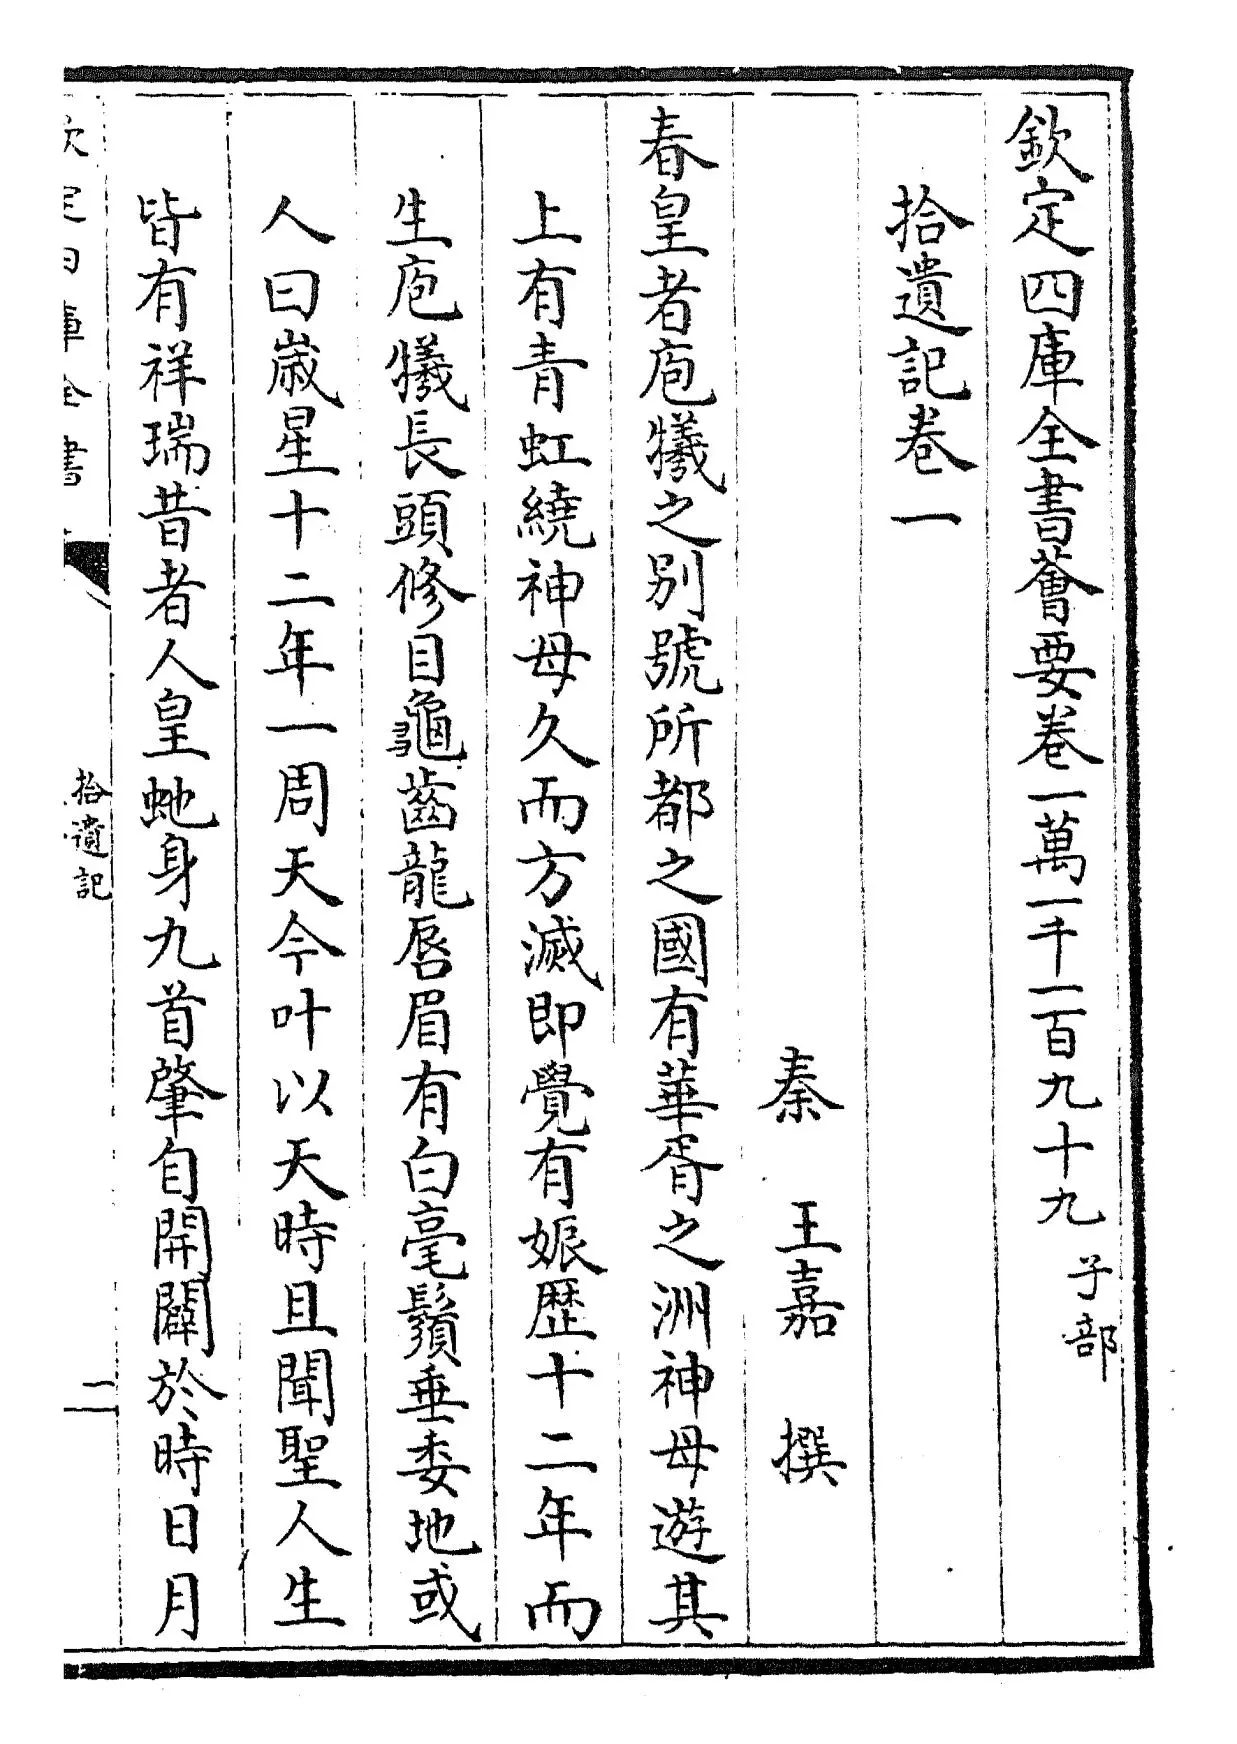 欽定四庫全書薈要卷一萬一千一百九十九子部
拾遺記卷一
秦王嘉撰
春皇者庖犧之别號所都之國有華胥之洲神母遊其
上有青虹繞神母久而方滅即覺有娠歴十二年而
生庖犧長頭修目龜齒龍唇眉有白毫鬚垂委地或
人曰嵗星十二年一周天今叶以天時且聞聖人生
皆有祥瑞昔者人皇虵身九首肇自開闢於時日月
欽定四庫全書
拾遺記
二